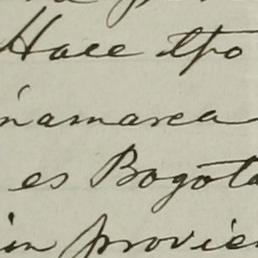 Hace tpo
namarca
es Bogota
in provien